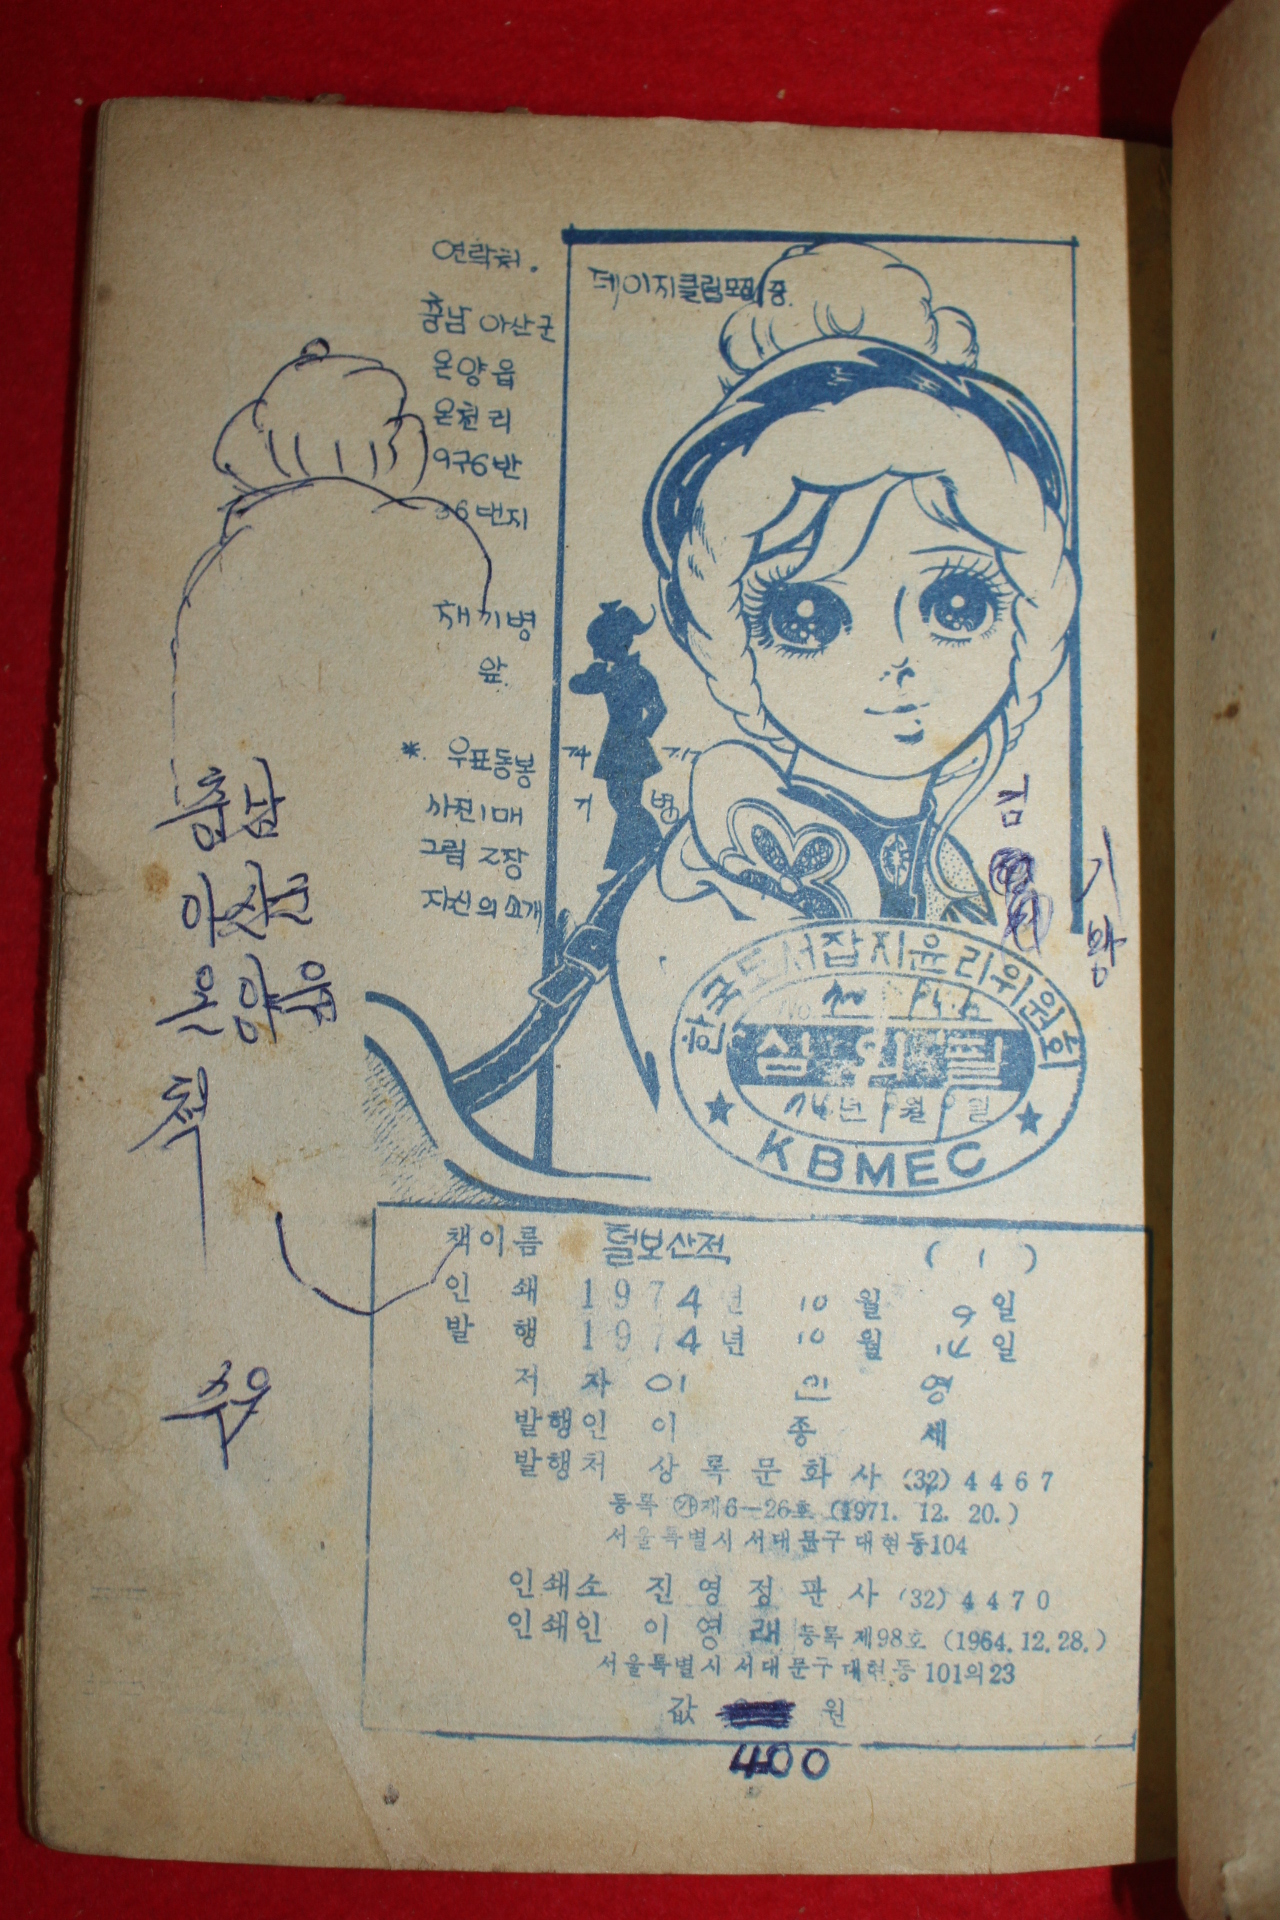 연락처.
충남 아산군
온양읍
온천리
9구6반
36번지
채기병
앞.
* 우표동봉
사진1매
그림 2장
자신의 소개
데이지클럽모집중.
74 7.17
기 병
충남
아산군
온양읍
김
기
왕
한국도서잡지윤리위원회
No.
심의필
74년 9월 9일
KBMEC
책이름 털보산적 (1)
인쇄 1974년 10월 9일
발행 1974년 10월 14일
저자 이 민 영
발행인 이 종 세
발행처 상록문화사 (32) 4467
등록 ㉮제6—26호 (1971. 12. 20.)
서울특별시 서대문구 대현동104
인쇄소 진영정판사 (32) 4470
인쇄인 이영래 등록 제98호 (1964. 12. 28.)
서울특별시 서대문구 대현동 101의23
값 원
400